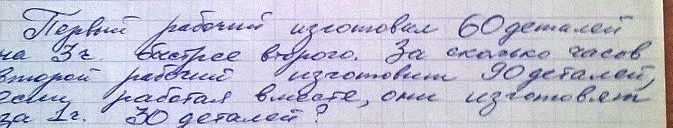 Первый рабочий изготовил 60 деталей
на 3 ч. быстрее второго. За сколько часов
второй рабочий изготовит 90 деталей,
если, работая вместе, они изготовят
за 1 ч. 30 деталей?